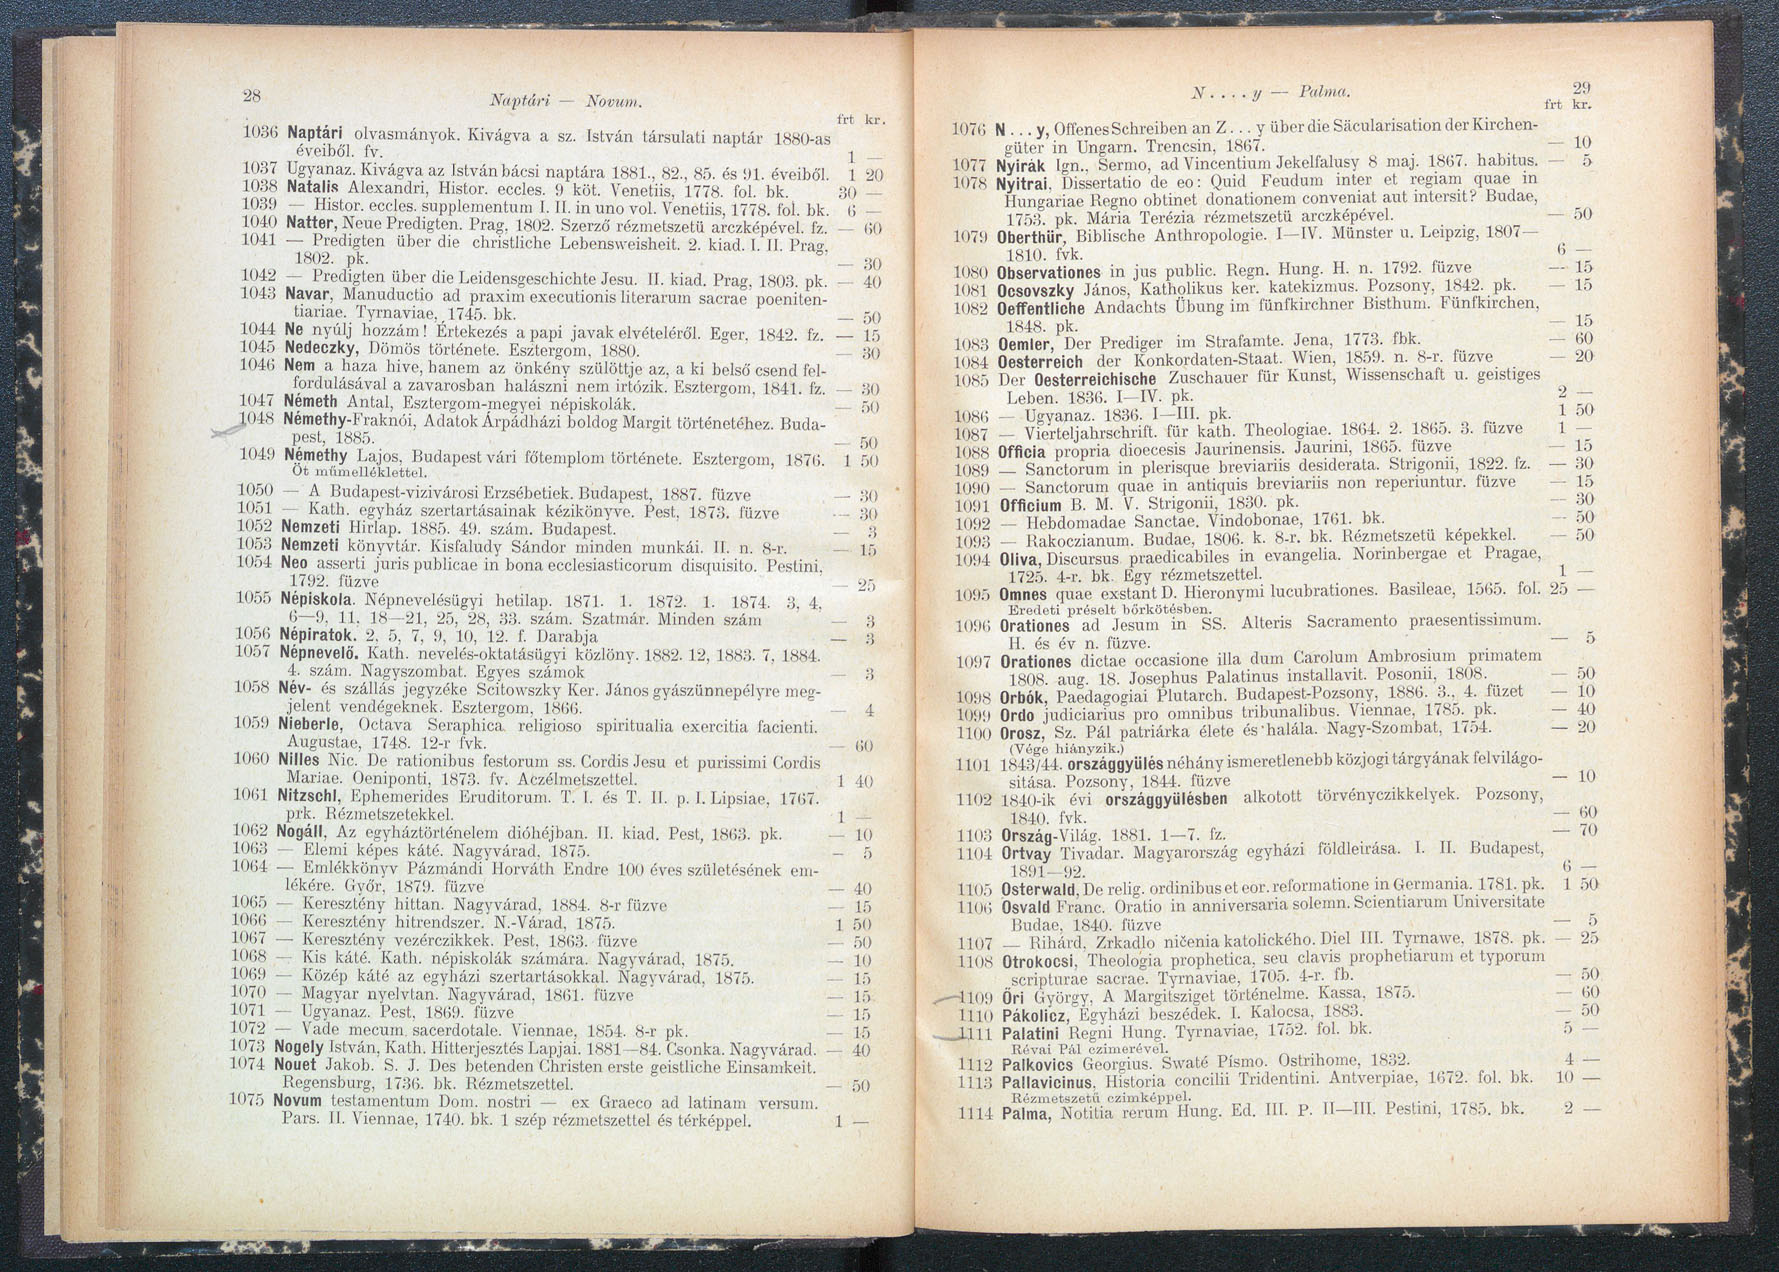 28
Naptári — Novum.
frt kr.
1036 Naptári olvasmányok. Kivágva a sz. István társulati naptár 1880-as
éveiből. fv. 1 —
1037 Ugyanaz. Kivágva az István bácsi naptára 1881., 82., 85. és 91. éveiből. 1 20
1038 Natalis Alexandri, Histor. eccles. 9 köt. Venetiis, 1778. fol. bk. 30 —
1039 — Histor. eccles. supplementum I. II. in uno vol. Venetiis, 1778. fol. bk. 6 —
1040 Natter, Neue Predigten. Prag, 1802. Szerző rézmetszetü arczképével. fz. — 60
1041 — Predigten über die christliche Lebensweisheit. 2. kiad. I. II. Prag,
1802. pk. — 30
1042 — Predigten über die Leidensgeschichte Jesu. II. kiad. Prag, 1803. pk. — 40
1043 Navar, Manuductio ad praxim executionis literarum sacrae poeniten-
tiariae. Tyrnaviae, 1745. bk. — 50
1044 Ne nyúlj hozzám! Értekezés a papi javak elvételéről. Eger, 1842. fz. — 15
1045 Nedeczky, Dömös története. Esztergom, 1880. — 30
1046 Nem a haza hive, hanem az önkény szülöttje az, a ki belső csend fel-
fordulásával a zavarosban halászni nem irtózik. Esztergom, 1841. fz. — 30
1047 Németh Antal, Esztergom-megyei népiskolák. — 50
1048 Némethy-Fraknói, Adatok Árpádházi boldog Margit történetéhez. Buda-
pest, 1885. — 50
1049 Némethy Lajos, Budapest vári főtemplom története. Esztergom, 1876. 1 50
Öt műmelléklettel.
1050 — A Budapest-vizivárosi Erzsébetiek. Budapest, 1887. füzve — 30
1051 — Kath. egyház szertartásainak kézikönyve. Pest, 1873. füzve — 30
1052 Nemzeti Hirlap. 1885. 49. szám. Budapest. — 3
1053 Nemzeti könyvtár. Kisfaludy Sándor minden munkái. II. n. 8-r. — 15
1054 Neo asserti juris publicae in bona ecclesiasticorum disquisito. Pestini,
1792. füzve — 25
1055 Népiskola. Népnevelésügyi hetilap. 1871. 1. 1872. 1. 1874. 3, 4,
6—9, 11, 18—21, 25, 28, 33. szám. Szatmár. Minden szám — 3
1056 Népiratok. 2, 5, 7, 9, 10, 12. f. Darabja — 3
1057 Népnevelő. Kath. nevelés-oktatásügyi közlöny. 1882. 12, 1883. 7, 1884.
4. szám. Nagyszombat. Egyes számok — 3
1058 Név- és szállás jegyzéke Scitowszky Ker. János gyászünnepélyre meg-
jelent vendégeknek. Esztergom, 1866. — 4
1059 Nieberle, Octava Seraphica religioso spiritualia exercitia facienti.
Augustae, 1748. 12-r fvk. — 60
1060 Nilles Nic. De rationibus festorum ss. Cordis Jesu et purissimi Cordis
Mariae. Oeniponti, 1873. fv. Aczélmetszettel. 1 40
1061 Nitzschl, Ephemerides Eruditorum. T. I. és T. II. p. I. Lipsiae, 1767.
prk. Rézmetszetekkel. 1 —
1062 Nogáll, Az egyháztörténelem dióhéjban. II. kiad. Pest, 1863. pk. — 10
1063 — Elemi képes káté. Nagyvárad, 1875. — 5
1064 — Emlékkönyv Pázmándi Horváth Endre 100 éves születésének em-
lékére. Győr, 1879. füzve — 40
1065 — Keresztény hittan. Nagyvárad, 1884. 8-r füzve — 15
1066 — Keresztény hitrendszer. N.-Várad, 1875. 1 50
1067 — Keresztény vezérczikkek. Pest, 1863. füzve — 50
1068 — Kis káté. Kath. népiskolák számára. Nagyvárad, 1875. — 10
1069 — Közép káté az egyházi szertartásokkal. Nagyvárad, 1875. — 15
1070 — Magyar nyelvtan. Nagyvárad, 1861. füzve — 15
1071 — Ugyanaz. Pest, 1869. füzve — 15
1072 — Vade mecum sacerdotale. Viennae, 1854. 8-r pk. — 15
1073 Nogely István, Kath. Hitterjesztés Lapjai. 1881—84. Csonka. Nagyvárad. — 40
1074 Nouet Jakob. S. J. Des betenden Christen erste geistliche Einsamkeit.
Regensburg, 1736. bk. Rézmetszettel. — 50
1075 Novum testamentum Dom. nostri — ex Graeco ad latinam versum.
Pars. II. Viennae, 1740. bk. 1 szép rézmetszettel és térképpel. 1 —
N....y — Palma.
29
frt kr.
1076 N...y, Offenes Schreiben an Z...y über die Säcularisation der Kirchen-
güter in Ungarn. Trencsin, 1867. — 10
1077 Nyirák Ign., Sermo, ad Vincentium Jekelfalusy 8 maj. 1867. habitus. — 5
1078 Nyitrai, Dissertatio de eo: Quid Feudum inter et regiam quae in
Hungariae Regno obtinet donationem conveniat aut intersit? Budae,
1753. pk. Mária Terézia rézmetszetü arczképével. — 50
1079 Oberthür, Biblische Anthropologie. I—IV. Münster u. Leipzig, 1807—
1810. fvk. 6 —
1080 Observationes in jus public. Regn. Hung. H. n. 1792. füzve — 15
1081 Ocsovszky János, Katholikus ker. katekizmus. Pozsony, 1842. pk. — 15
1082 Oeffentliche Andachts Übung im fünfkirchner Bisthum. Fünfkirchen,
1848. pk. — 15
1083 Oemler, Der Prediger im Strafamte. Jena, 1773. fbk. — 60
1084 Oesterreich der Konkordaten-Staat. Wien, 1859. n. 8-r. füzve — 20
1085 Der Oesterreichische Zuschauer für Kunst, Wissenschaft u. geistiges
Leben. 1836. I—IV. pk. 2 —
1086 — Ugyanaz. 1836. I—III. pk. 1 50
1087 — Vierteljahrschrift. für kath. Theologiae. 1864. 2. 1865. 3. füzve 1 —
1088 Officia propria dioecesis Jaurinensis. Jaurini, 1865. füzve — 15
1089 — Sanctorum in plerisque breviariis desiderata. Strigonii, 1822. fz. — 30
1090 — Sanctorum quae in antiquis breviariis non reperiuntur. füzve — 15
1091 Officium B. M. V. Strigonii, 1830. pk. — 30
1092 — Hebdomadae Sanctae. Vindobonae, 1761. bk. — 50
1093 — Rakoczianum. Budae, 1806. k. 8-r. bk. Rézmetszetü képekkel. — 50
1094 Oliva, Discursus praedicabiles in evangelia. Norinbergae et Pragae,
1725. 4-r. bk. Egy rézmetszettel. 1 —
1095 Omnes quae exstant D. Hieronymi lucubrationes. Basileae, 1565. fol. 25 —
Eredeti préselt bőrkötésben.
1096 Orationes ad Jesum in SS. Alteris Sacramento praesentissimum.
H. és év n. füzve. — 5
1097 Orationes dictae occasione illa dum Carolum Ambrosium primatem
1808. aug. 18. Josephus Palatinus installavit. Posonii, 1808. — 50
1098 Orbók, Paedagogiai Plutarch. Budapest-Pozsony, 1886. 3., 4. füzet — 10
1099 Ordo judiciarius pro omnibus tribunalibus. Viennae, 1785. pk. — 40
1100 Orosz, Sz. Pál patriárka élete és halála. Nagy-Szombat, 1754. — 20
(Vége hiányzik.)
1101 1843/44. országgyülés néhány ismeretlenebb közjogi tárgyának felvilágo-
sitása. Pozsony, 1844. füzve — 10
1102 1840-ik évi országgyülésben alkotott törvényczikkelyek. Pozsony,
1840. fvk. — 60
1103 Ország-Világ. 1881. 1—7. fz. — 70
1104 Ortvay Tivadar. Magyarország egyházi földleirása. I. II. Budapest,
1891—92. 6 —
1105 Osterwald, De relig. ordinibus et eor. reformatione in Germania. 1781. pk. 1 50
1106 Osvald Franc. Oratio in anniversaria solemn. Scientiarum Universitate
Budae, 1840. füzve — 5
1107 — Rihárd, Zrkadlo ničenia katolického. Diel III. Tyrnawe, 1878. pk. — 25
1108 Otrokocsi, Theologia prophetica, seu clavis prophetiarum et typorum
scripturae sacrae. Tyrnaviae, 1705. 4-r. fb. — 50
1109 Őri György, A Margitsziget történelme. Kassa, 1875. — 60
1110 Pákolicz, Egyházi beszédek. I. Kalocsa, 1883. — 50
1111 Palatini Regni Hung. Tyrnaviae, 1752. fol. bk. 5 —
Révai Pál czimerével.
1112 Palkovics Georgius. Swaté Písmo. Ostrihome, 1832. 4 —
1113 Pallavicinus, Historia concilii Tridentini. Antverpiae, 1672. fol. bk. 10 —
Rézmetszetü czimképpel.
1114 Palma, Notitia rerum Hung. Ed. III. P. II—III. Pestini, 1785. bk. 2 —